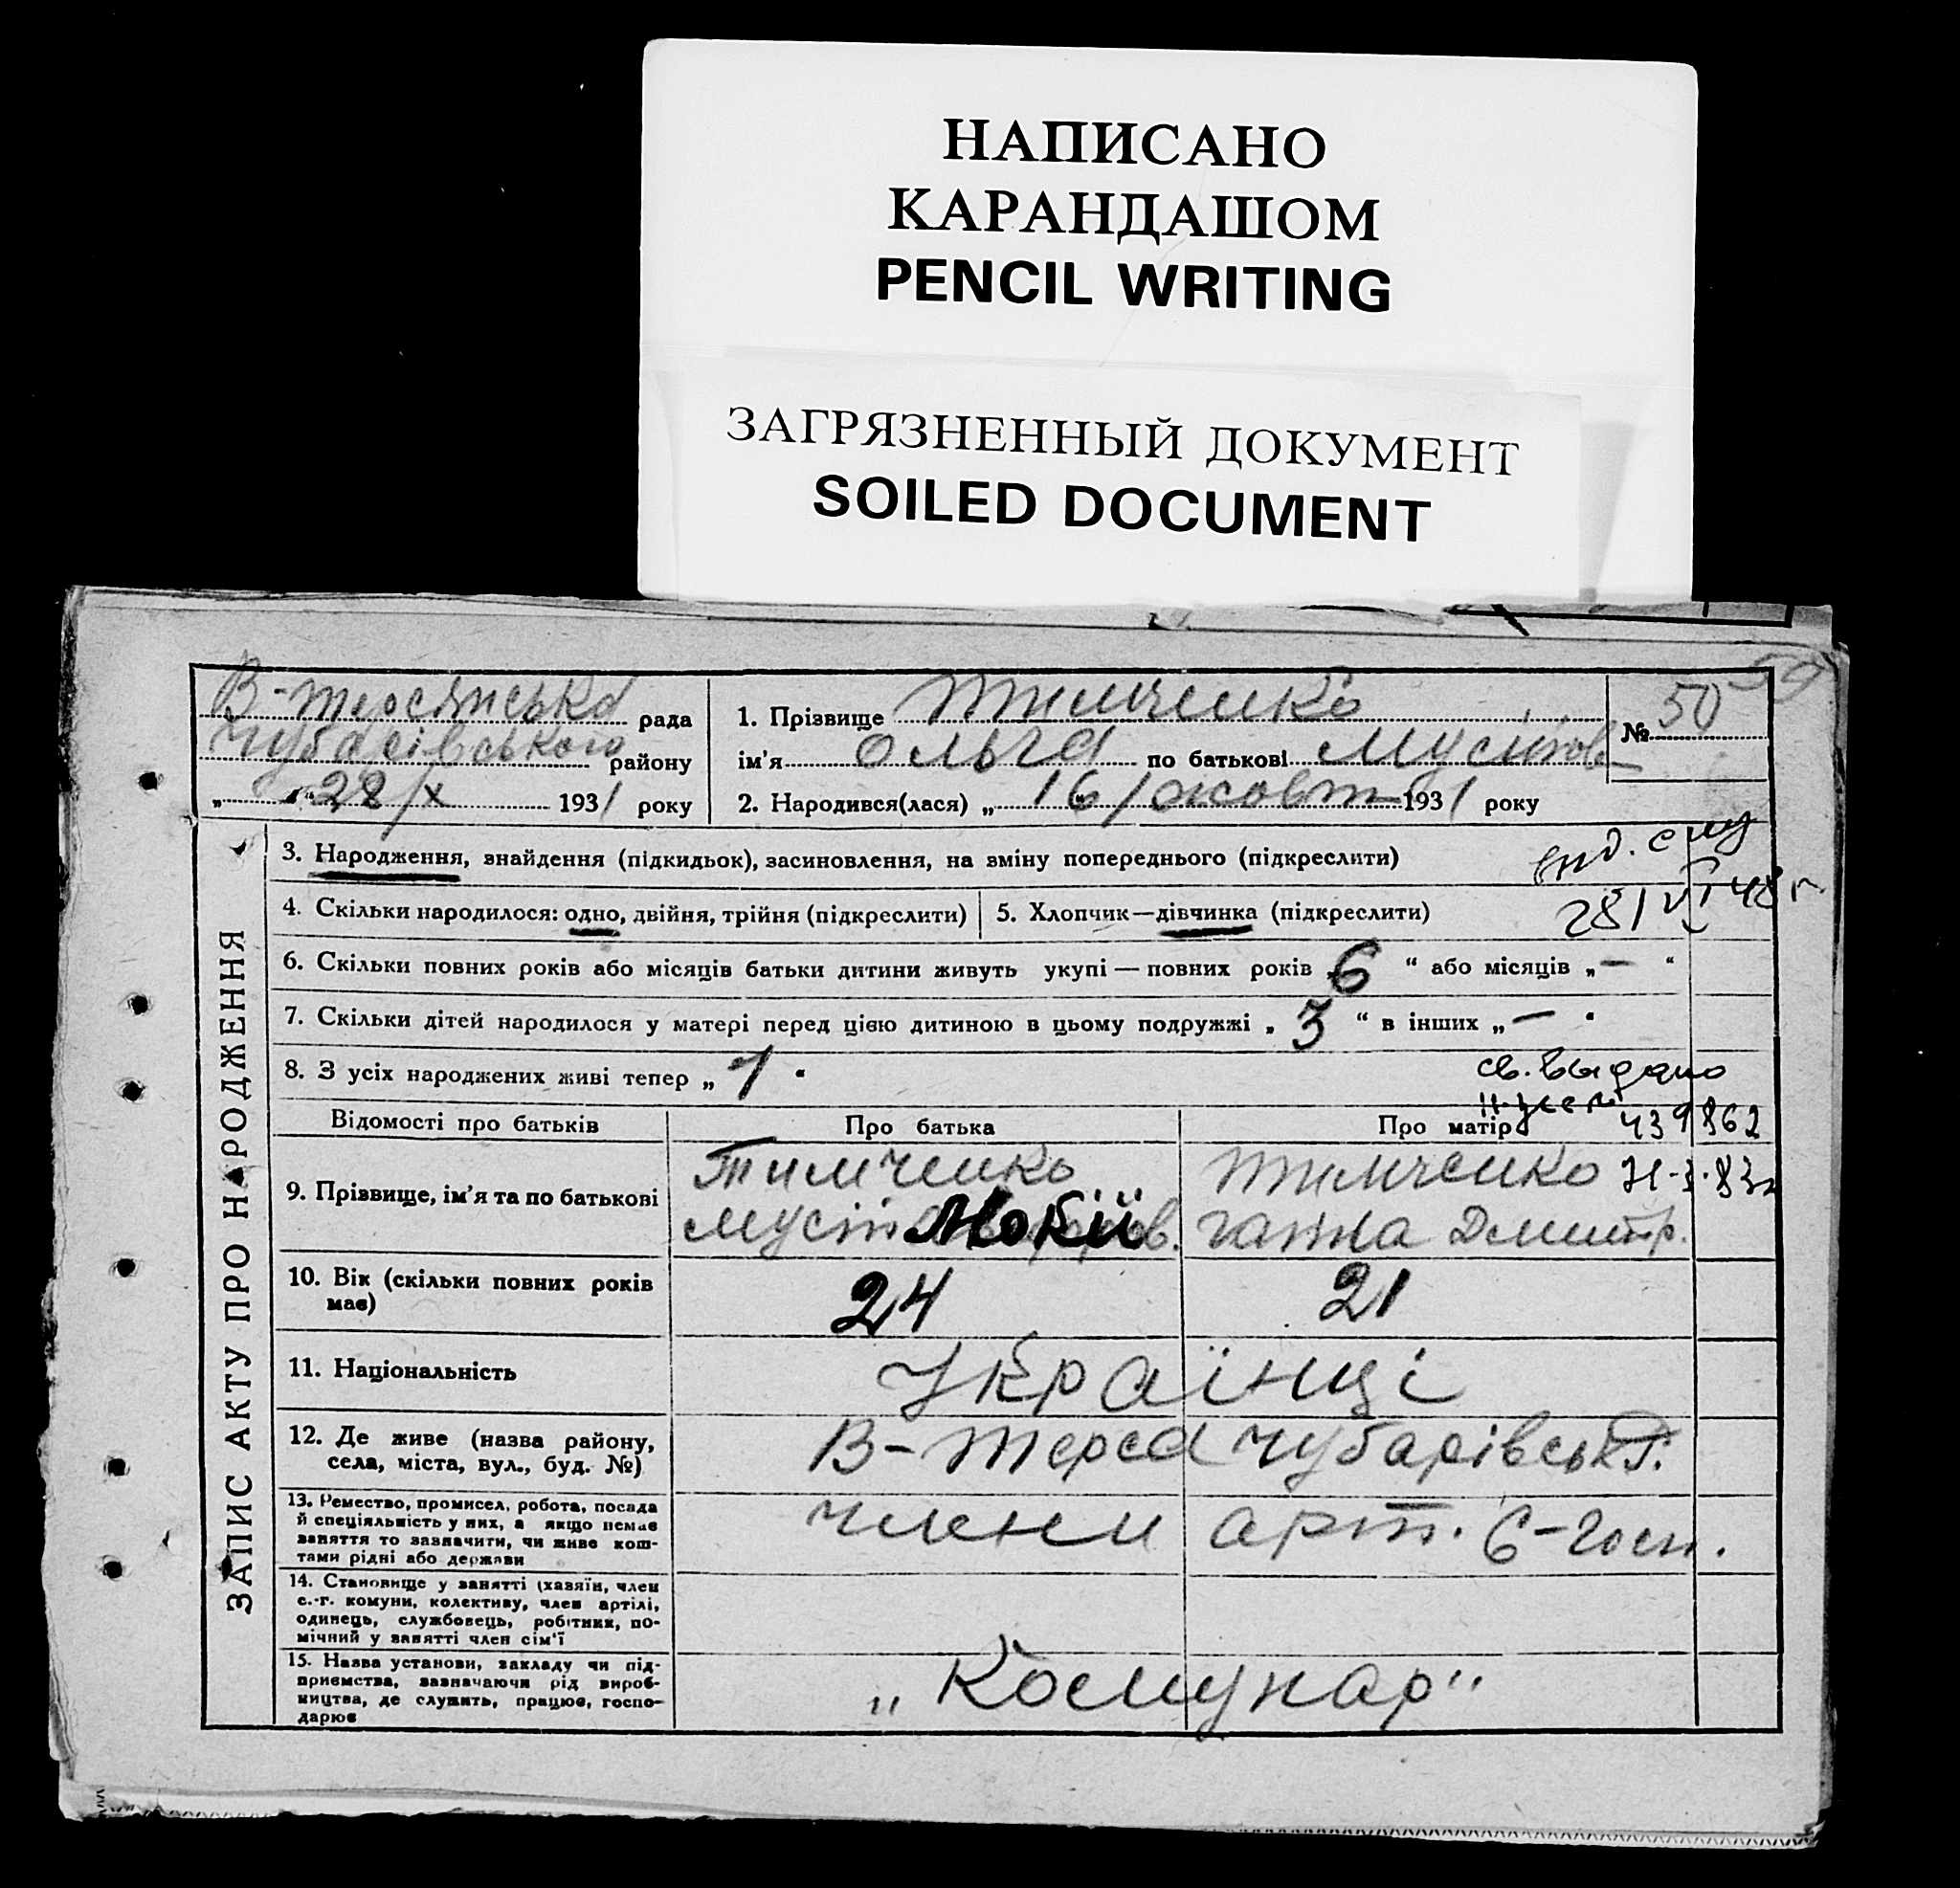 НАПИСАНО
КАРАНДАШОМ
PENCIL WRITING
ЗАГРЯЗНЕННЫЙ ДОКУМЕНТ
SOILED DOCUMENT
В-Терсянська рада
Чубарівського району
„ “ 28/X 1931 року
1. Прізвище Тимченко
ім’я Ольга по батькові Мусіїов
2. Народився(лася) „ 16/жовт 1931 року
№ 50
59
ЗАПИС АКТУ ПРО НАРОДЖЕННЯ
3. Народження, знайдення (підкидьок), засиновлення, на зміну попереднього (підкреслити)
4. Скільки народилося: одно, двійня, трійня (підкреслити)
5. Хлопчик—дівчинка (підкреслити)
28/VI 48 г
6. Скільки повних років або місяців батьки дитини живуть укупі — повних років 6 “ або місяців „ — “
7. Скільки дітей народилося у матері перед цією дитиною в цьому подружжі „ 3 “ в інших „ — “
8. З усіх народжених живі тепер „ 1 “
св. выдано
439862
Відомості про батьків
Про батька
Про матір
9. Прізвище, ім’я та по батькові
Тимченко
Мусій
Тимченко
Ганна Дмитр.
10. Вік (скільки повних років має)
24
21
11. Національність
Українці
12. Де живе (назва району, села, міста, вул., буд. №)
В-Терса Чубарівськ Р.
13. Ремество, промисел, робота, посада
й спеціяльність у них, а якщо немає
заняття то зазначити, чи живе кош-
тами рідні або держави
члени арт. С-госп.
14. Становище у занятті (хазяїн, член
с.-г. комуни, колективу, член артілі,
одинець, службовець, робітник, по-
мічний у занятті член сім’ї
15. Назва установи, закладу чи під-
приємства, зазначаючи рід вироб-
ництва, де служить, працює, госпо-
дарює
„Комунар“